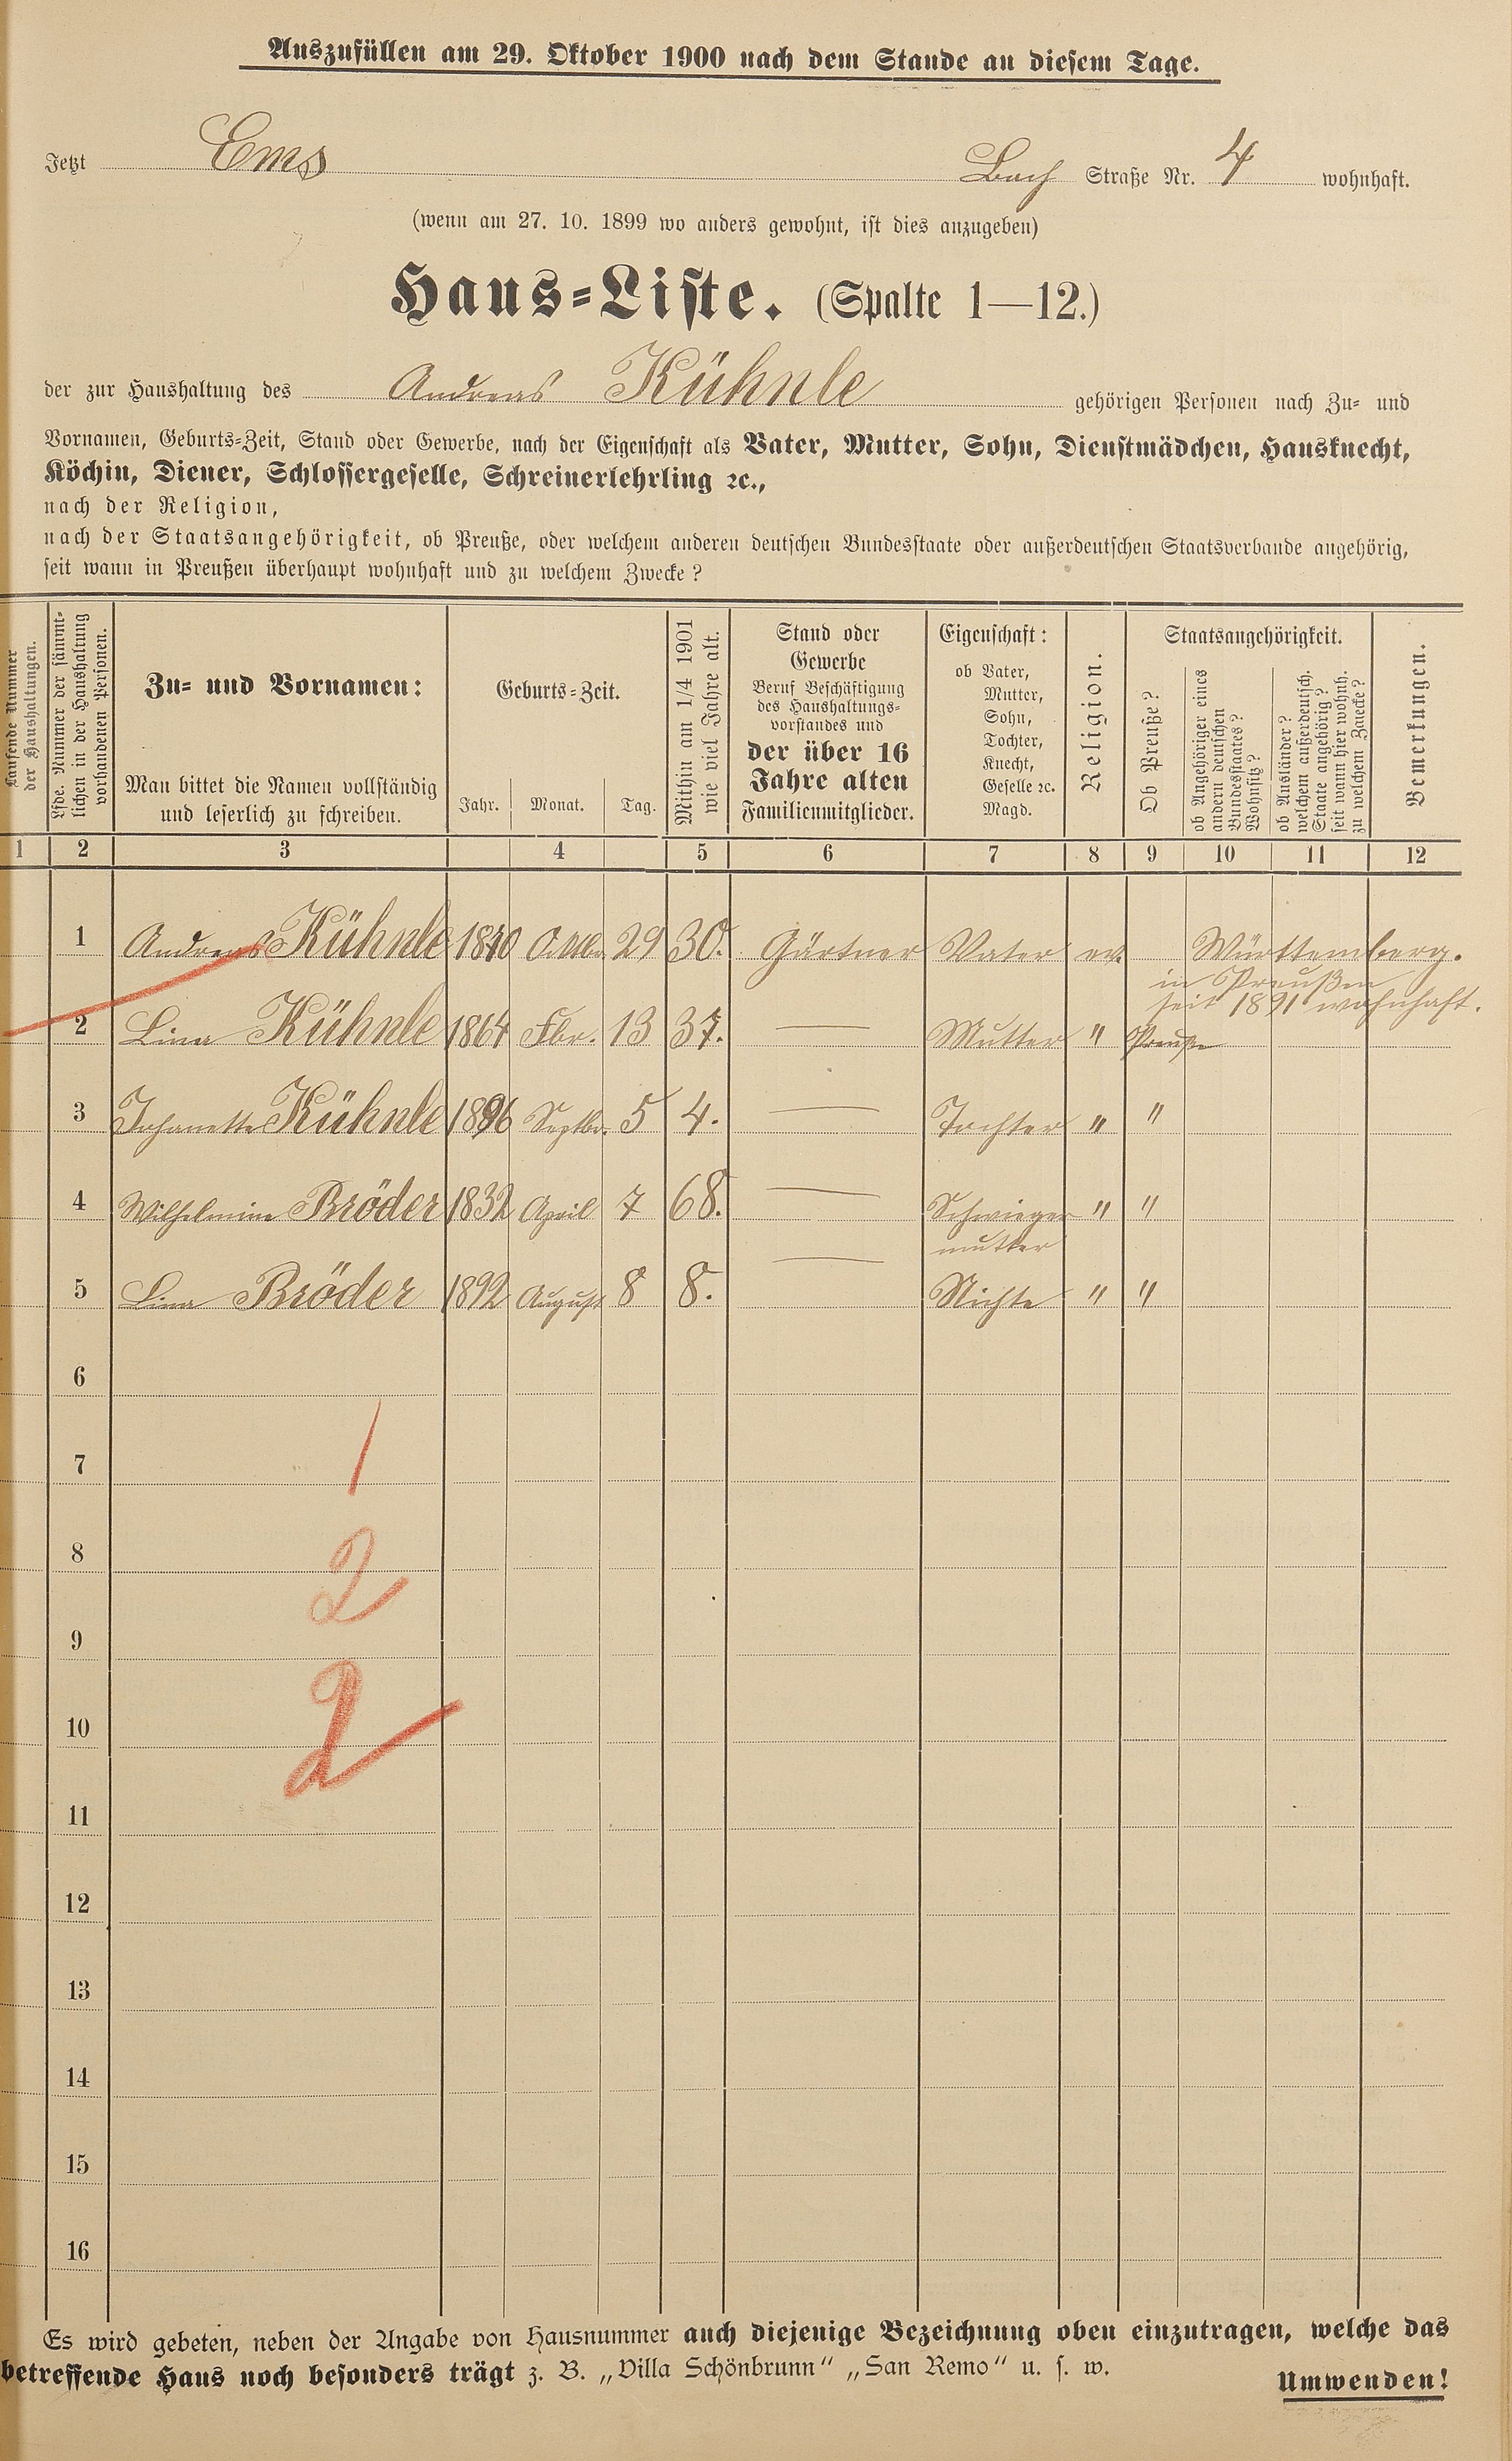 Auszufüllen am 29. Oktober 1900 nach dem Stande an diesem Tage.
Jetzt Ems Bach Straße Nr. 4 wohnhaft.
(wenn am 27. 10. 1899 wo anders gewohnt, ist dies anzugeben)
Haus-Liste. (Spalte 1—12.)
der zur Haushaltung des Andreas Kühnle gehörigen Personen nach Zu- und
Vornamen, Geburts-Zeit, Stand oder Gewerbe, nach der Eigenschaft als Vater, Mutter, Sohn, Dienstmädchen, Hausknecht,
Köchin, Diener, Schlossergeselle, Schreinerlehrling ꝛc.,
nach der Religion,
nach der Staatsangehörigkeit, ob Preuße, oder welchem anderen deutschen Bundesstaate oder außerdeutschen Staatsverbande angehörig,
seit wann in Preußen überhaupt wohnhaft und zu welchem Zwecke?
Laufende Nummer
der Haushaltungen.
Lfde. Nummer der sämmt-
lichen in der Haushaltung
vorhandenen Personen.
Zu- und Vornamen:
Man bittet die Namen vollständig
und leserlich zu schreiben.
Geburts-Zeit.
Jahr. Monat. Tag.
Mithin am 1/4 1901
wie viel Jahre alt.
Stand oder
Gewerbe
Beruf Beschäftigung
des Haushaltungs-
vorstandes und
der über 16
Jahre alten
Familienmitglieder.
Eigenschaft:
ob Vater,
Mutter,
Sohn,
Tochter,
Knecht,
Geselle ꝛc.
Magd.
Religion.
Staatsangehörigkeit.
Ob Preuße?
ob Angehöriger eines
andern deutschen
Bundesstaates?
Wohnsitz?
ob Ausländer?
welchem außerdeutsch.
Staate angehörig?
seit wann hier wohnh.
zu welchem Zwecke?
Bemerkungen.
1 2 3 4 5 6 7 8 9 10 11 12
1 Andreas Kühnle 1870 Oktbr. 29 30. Gärtner Vater ev. Württemberg.
in Preußen
seit 1891 wohnhaft.
2 Lina Kühnle 1864 Fbr. 13 37. — Mutter " Preuße
3 Johanette Kühnle 1896 Septbr. 5 4. — Tochter " "
4 Wilhelmine Bröder 1832 April 7 68. — Schwieger " "
mutter
5 Lina Bröder 1892 August 8 8. — Nichte " "
6
7 1
8 2
9
10 2
11
12
13
14
15
16
Es wird gebeten, neben der Angabe von Hausnummer auch diejenige Bezeichnung oben einzutragen, welche das
betreffende Haus noch besonders trägt z. B. „Villa Schönbrunn“ „San Remo“ u. s. w.
Umwenden!